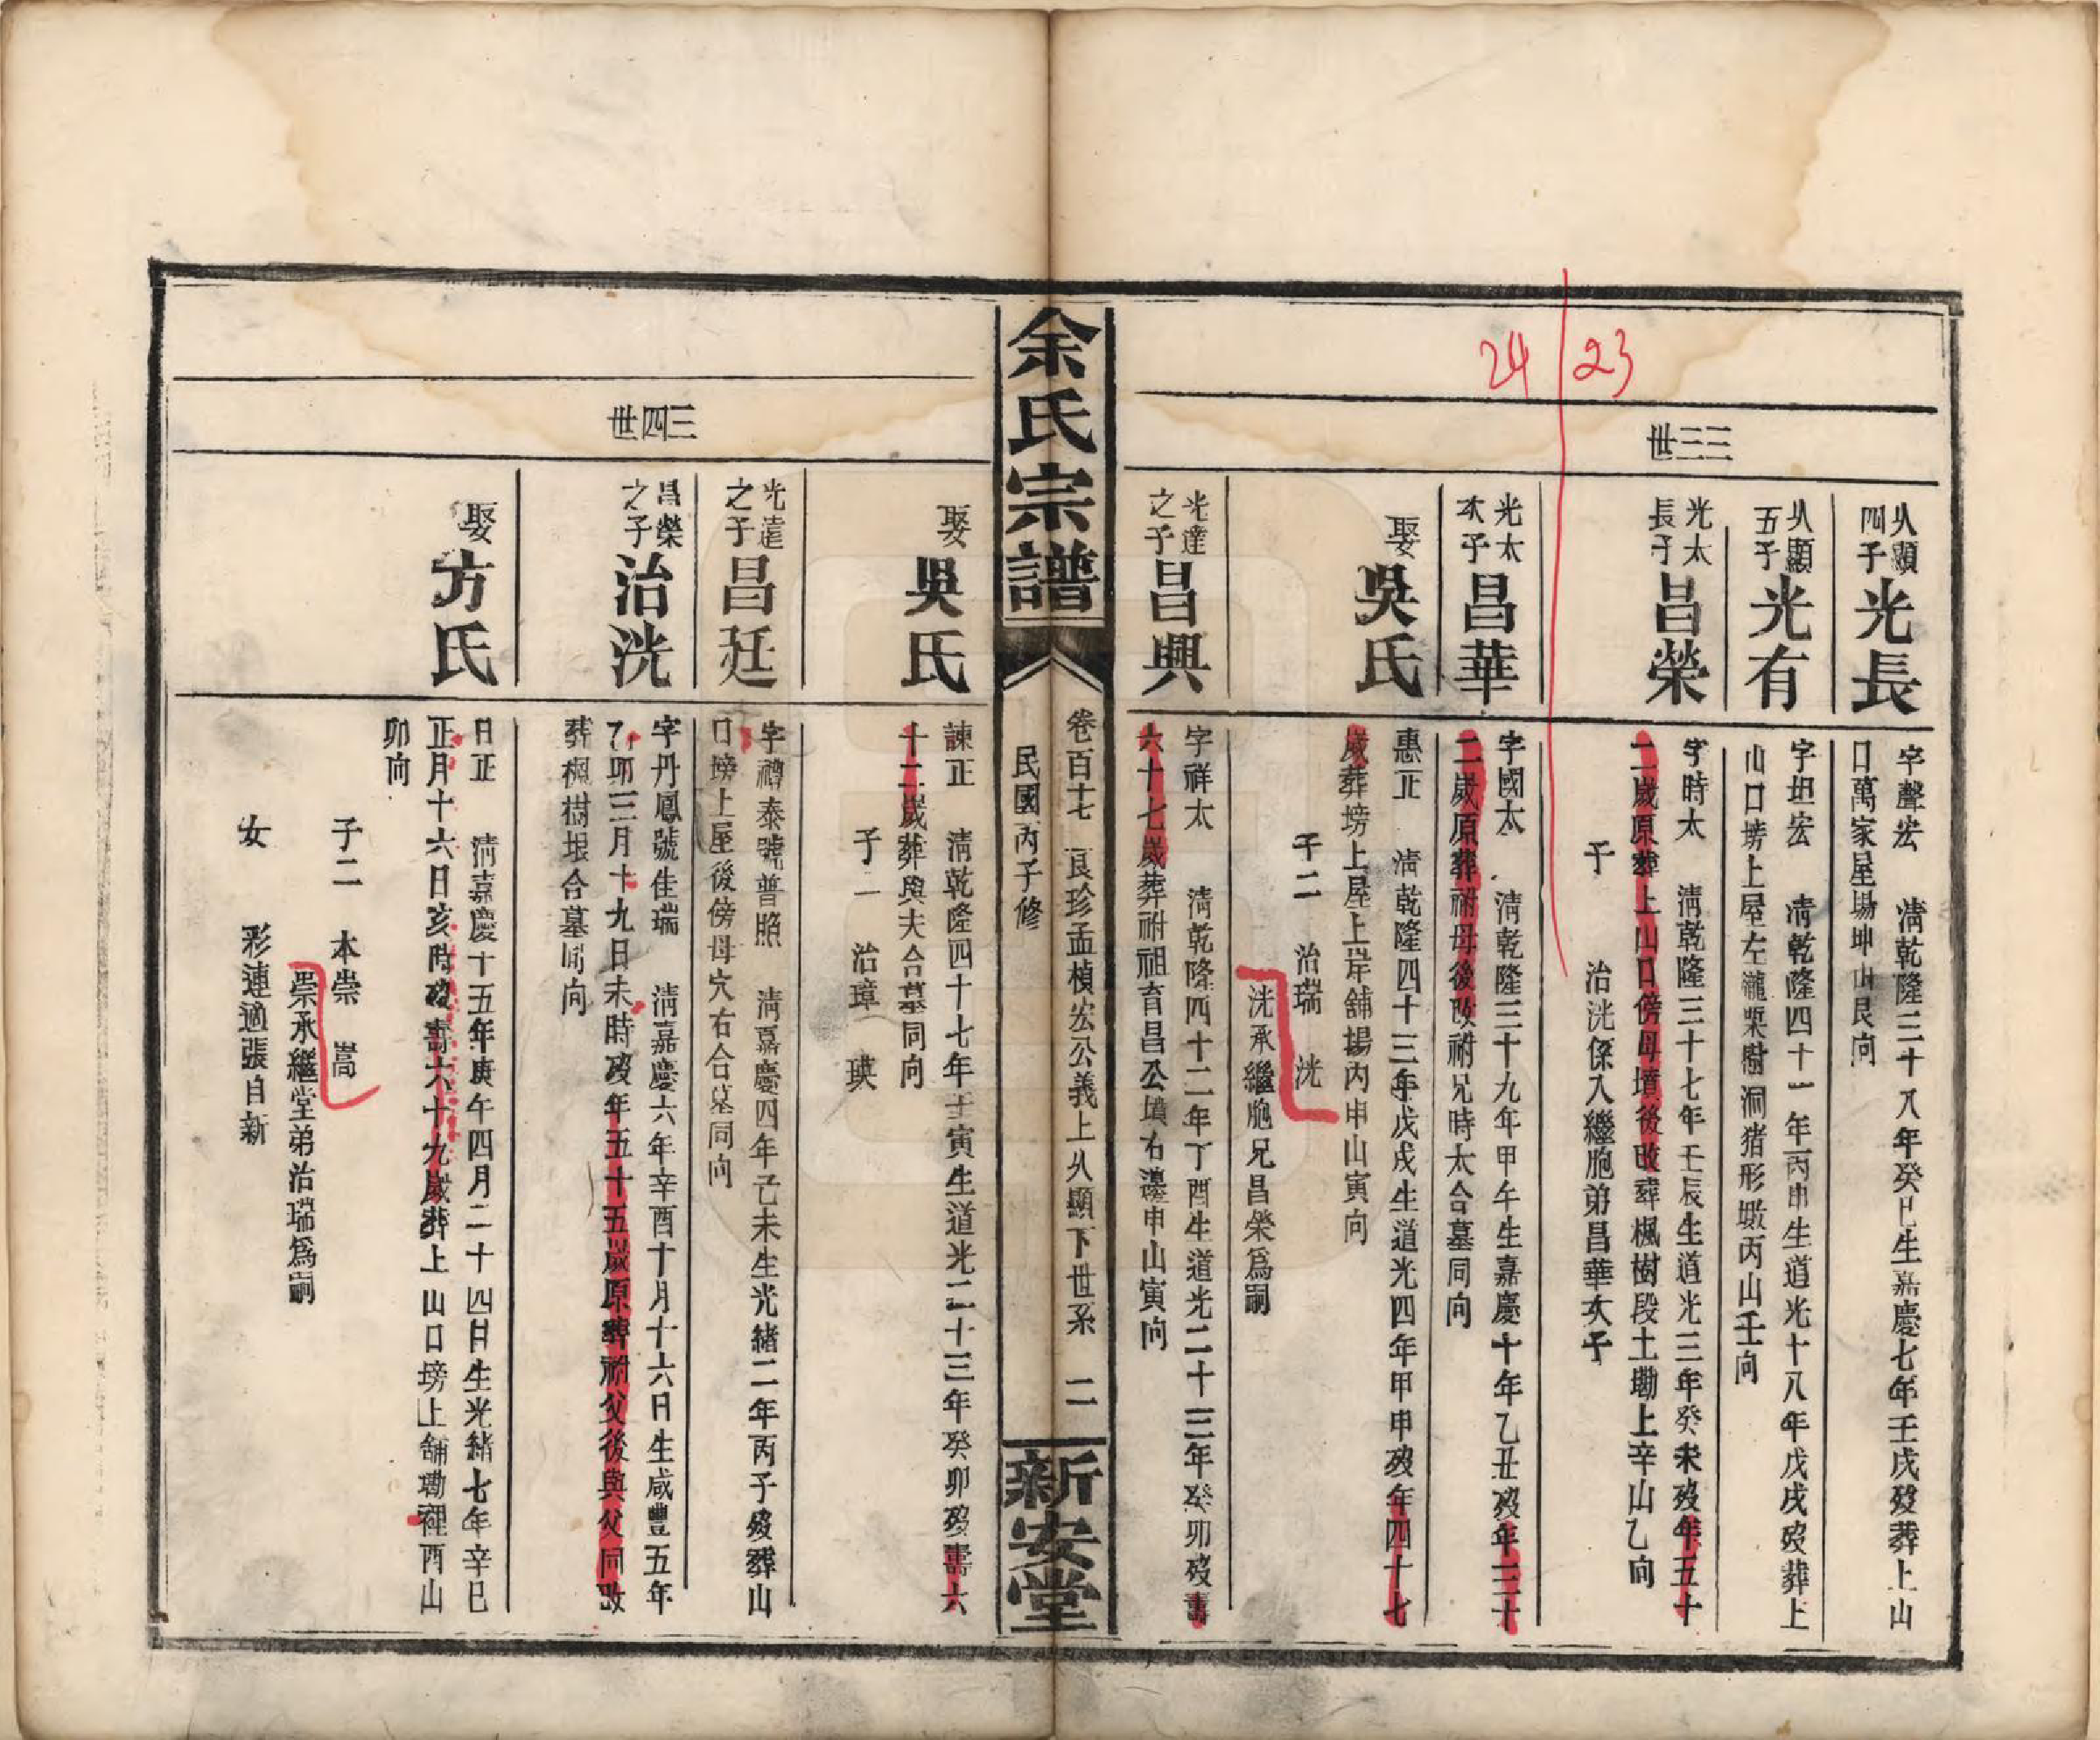 23
24
三三世
乆顯四子光長
字聲宏 淸乾隆三十八年癸巳生嘉慶七年壬戌歿葬上山
口萬家屋塲坤山艮向
乆顯五子光有
字坦宏 淸乾隆四十一年丙申生道光十八年戊戌歿葬上
山口塝上屋左瀧栗樹洞猪形㘵丙山壬向
光太長子昌榮
字時太 淸乾隆三十七年壬辰生道光三年癸未歿年五十
二歲原葬上山口傍母墳後改葬楓樹段土墈上辛山乙向
子 治洸係入繼胞弟昌華次子
光太次子昌華
字國太 淸乾隆三十九年甲午生嘉慶十年乙丑歿年三十
二歲原葬祔母後改祔兄時太合墓同向
娶吳氏
惠正 淸乾隆四十三年戊戌生道光四年甲申歿年四十七
歲葬塝上屋上岸舖塲丙申山寅向
子二 治瑞 洸
洸承繼胞兄昌榮爲嗣
光達之子昌興
字祥太 淸乾隆四十二年丁酉生道光二十三年癸卯歿壽
六十七歲葬祔祖育昌公墳右邊申山寅向
余氏宗譜
卷百十七 良珍孟楨宏公義上乆顯下世系 二
民國丙子修
新安堂
娶吳氏
諫正 淸乾隆四十七年壬寅生道光二十三年癸卯歿壽六
十二歲葬與夫合墓同向
子二 治璋 瑛
光達之子昌廷
字禮泰號普照 淸嘉慶四年己未生光緒二年丙子歿葬山
口塝上屋後傍母穴右合墓同向
三四世
昌榮之子治洸
字丹鳳號佳瑞 淸嘉慶六年辛酉十月十六日生咸豐五年
乙卯三月十九日未時歿年五十五歲原葬祔父後與父同改
葬楓樹垠合墓同向
娶方氏
日正 淸嘉慶十五年庚午四月二十四日生光緒七年辛巳
正月十六日亥時歿壽六十九歲葬上山口塝上舖墈裡酉山
卯向
子二 本崇 嵩
崇承繼堂弟治瑞爲嗣
女 彩連適張自新